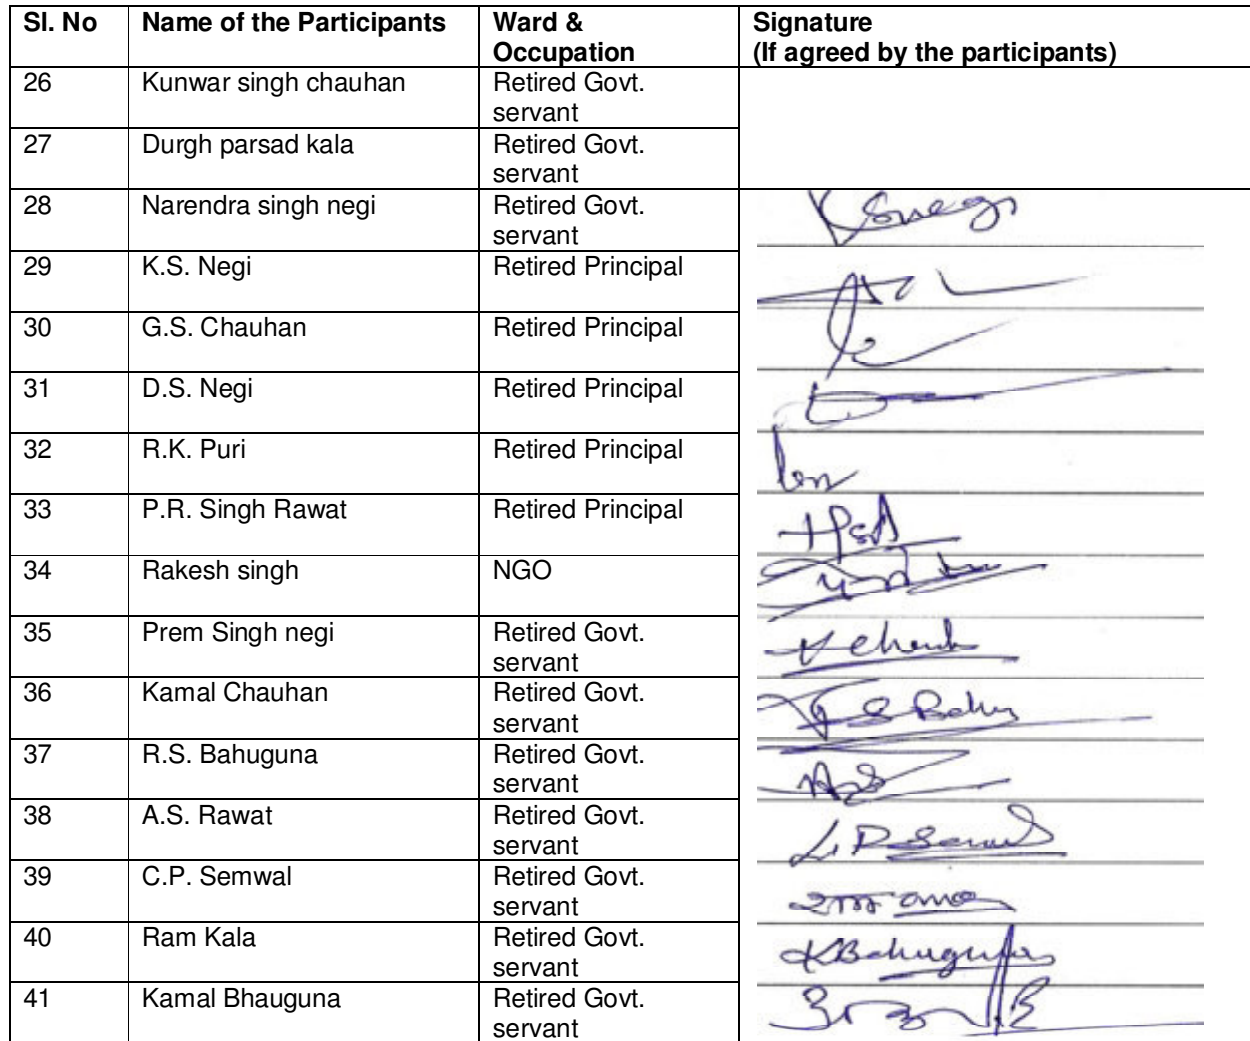 Sl. No Name of the Participants Ward & Occupation Signature (If agreed by the participants)
26 Kunwar singh chauhan Retired Govt. servant
27 Durgh parsad kala Retired Govt. servant
28 Narendra singh negi Retired Govt. servant
29 K.S. Negi Retired Principal
30 G.S. Chauhan Retired Principal
31 D.S. Negi Retired Principal
32 R.K. Puri Retired Principal
33 P.R. Singh Rawat Retired Principal
34 Rakesh singh NGO
35 Prem Singh negi Retired Govt. servant
36 Kamal Chauhan Retired Govt. servant
37 R.S. Bahuguna Retired Govt. servant
38 A.S. Rawat Retired Govt. servant
39 C.P. Semwal Retired Govt. servant
40 Ram Kala Retired Govt. servant KBahuguna
41 Kamal Bhauguna Retired Govt. servant